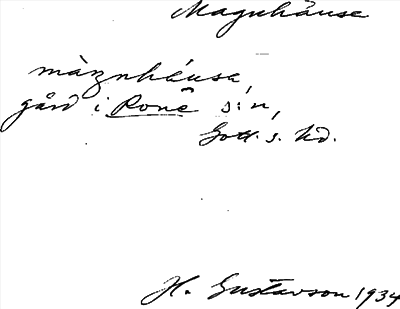 Magnhäuse
màgnhéusa,
gård i Rone s:n,
Gotl. s. hd.
H. Gustavson 1934